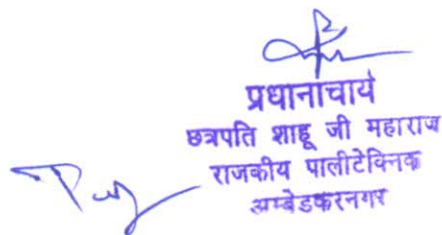 प्रधानाचार्य
छत्रपति शाहू जी महाराज
राजकीय पालीटेक्निक
अम्बेडकरनगर